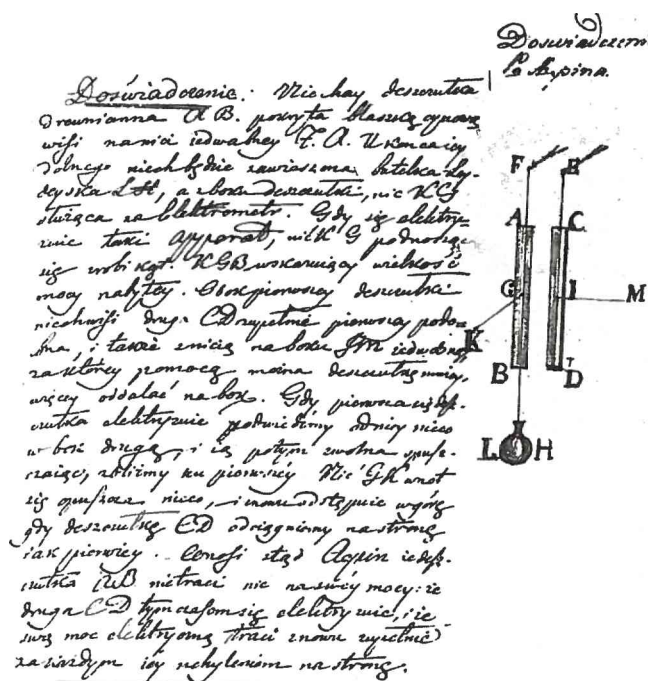 Doświadczeni
Doświadczenie. Niechay deszczułka
drewnianna A B. pokryta blaszką cynową
wisi na nici iedwabney F. A. U konca iey
dolnego niech będzie zawieszona butelka Ley-
deyska L H, a z boku deszczułki, nic K G
służąca za Elektrometr. Gdy się elektry-
zuie taki apparat, nić K G podnosząc
się zrobi kąt. K G B wskazuiący wielkość
mocy nabytey. Obok pierwszey deszczułki
niech wisi druga C D zupełnie pierwszey podo-
bna, i także z nicią na boku I M iedwabną
za ktorey pomocą można deszczułkę mniey,
więcey oddalać na bok. Gdy pierwsza się desz-
czułka elektryzuie podwiedźmy od niey nieco
w bok drugą, i ią potym zwolna spusz-
czaiąc, zbliżmy ku pierwszey Nić G K wnet
się opuszcza nieco, i znowu odstępuie w górę
gdy deszczułkę C D odciągniemy na stronę
iak pierwiey. Wnosi stąd Aepin że desz-
czułka A B nietraci nic na swey mocy: że
druga C D tym czasem się elektryzuie, i że
swą moc elektryczną traci znowu zupełnie
za każdym iey uchyleniem na stronę.
F E
A C
G I M
K
B D
L H